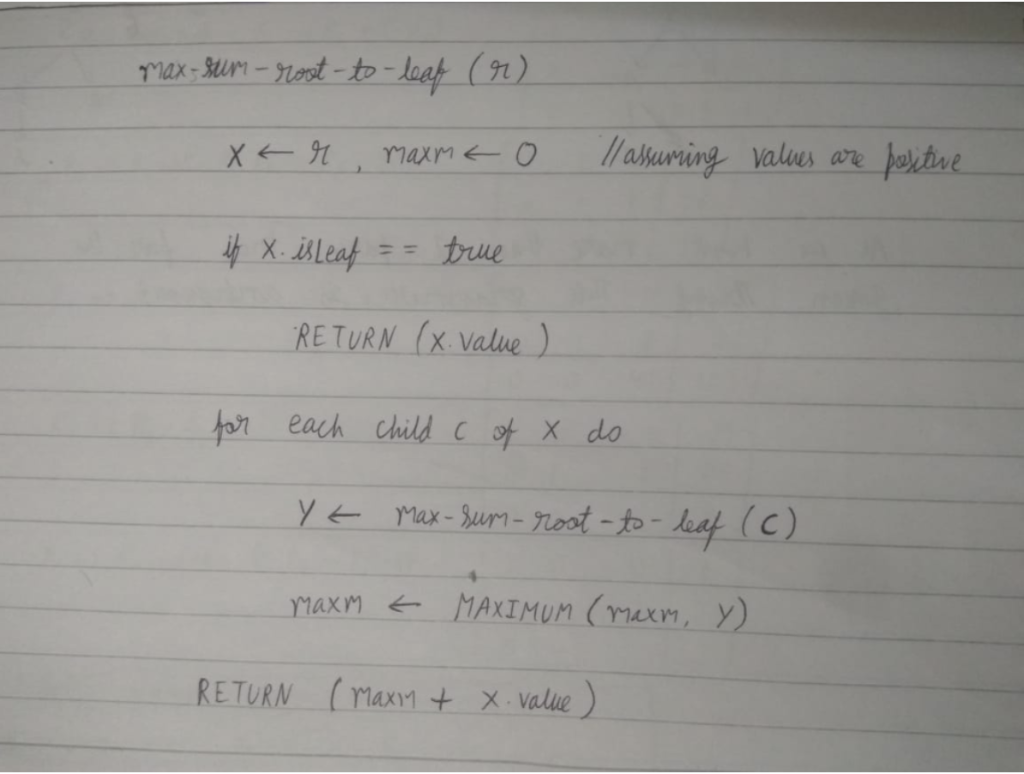 max-sum-root-to-leaf (r)
X ← r , maxm ← 0 //assuming values are positive
if X.isLeaf == true
RETURN (X.value)
for each child C of X do
Y ← max-sum-root-to-leaf (C)
maxm ← MAXIMUM (maxm, Y)
RETURN (maxm + X.value)